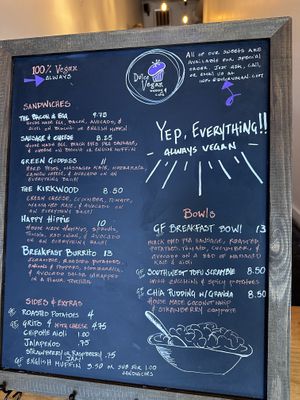 100% Vegan
ALWAYS
Dolce
Vegan
ALL OF OUR SWEETS ARE
AVAILABLE FOR SPECIAL
ORDER
JUST ASK, CALL,
OR EMAIL US AT
SANDWICHES
THE BACON & EGG 9.75
HOUSE MADE EGG, BACON, AVOCADO, &
AIOLI ON BISCUIT OR ENGLISH MUFFIN
SAUSAGE & CHEESE 8.25
HOUSE MADE EGG, BLACK EYED PEA SAUSAGE,
& CHEESE ON BISCUIT OR ENGLISH MUFFIN
GREEN GODDESS 11
AVOCADO ON AN
EVERYTHING BAGEL
THE KIRKWOOD 8.50
CREAM CHEESE, CUCUMBER, TOMATO,
MARINATED KALE, & AVOCADO ON
AN EVERYTHING BAGEL
HAPPY HIPPIE 10
HOUSE MADE
AVOCADO
ON AN EVERYTHING BAGEL
BREAKFAST BURRITO 13
SCRAMBLE, ROASTED POTATOES,
ONIONS & PEPPERS, MOZZARELLA,
& AVOCADO SALSA WRAPPED
IN A FLOUR TORTILLA
YEP, EVERYTHING!!
ALWAYS VEGAN
BOWLS
GF BREAKFAST BOWL 13
BLACK EYED PEA SAUSAGE, ROASTED
POTATOES, TOMATO, CUCUMBER, &
AVOCADO ON A BED OF MARINATED
KALE & AIOLI
GF SOUTHWEST TOFU SCRAMBLE 8.50
WITH ENGLISH & SPICY POTATOES
GF CHIA PUDDING W/GRANOLA 8.50
HOUSE MADE COCONUT
& STRAWBERRY COMPOTE
SIDES & EXTRAS
GF ROASTED POTATOES 4
GF GRITS 4 WITH CHEESE 4.75
CHIPOTLE AIOLI 1.00
JALAPENOS .75
STRAWBERRY OR RASPBERRY
JAM .75
GF ENGLISH MUFFIN 3.50 OR SUB FOR 1.00
SANDWICHES